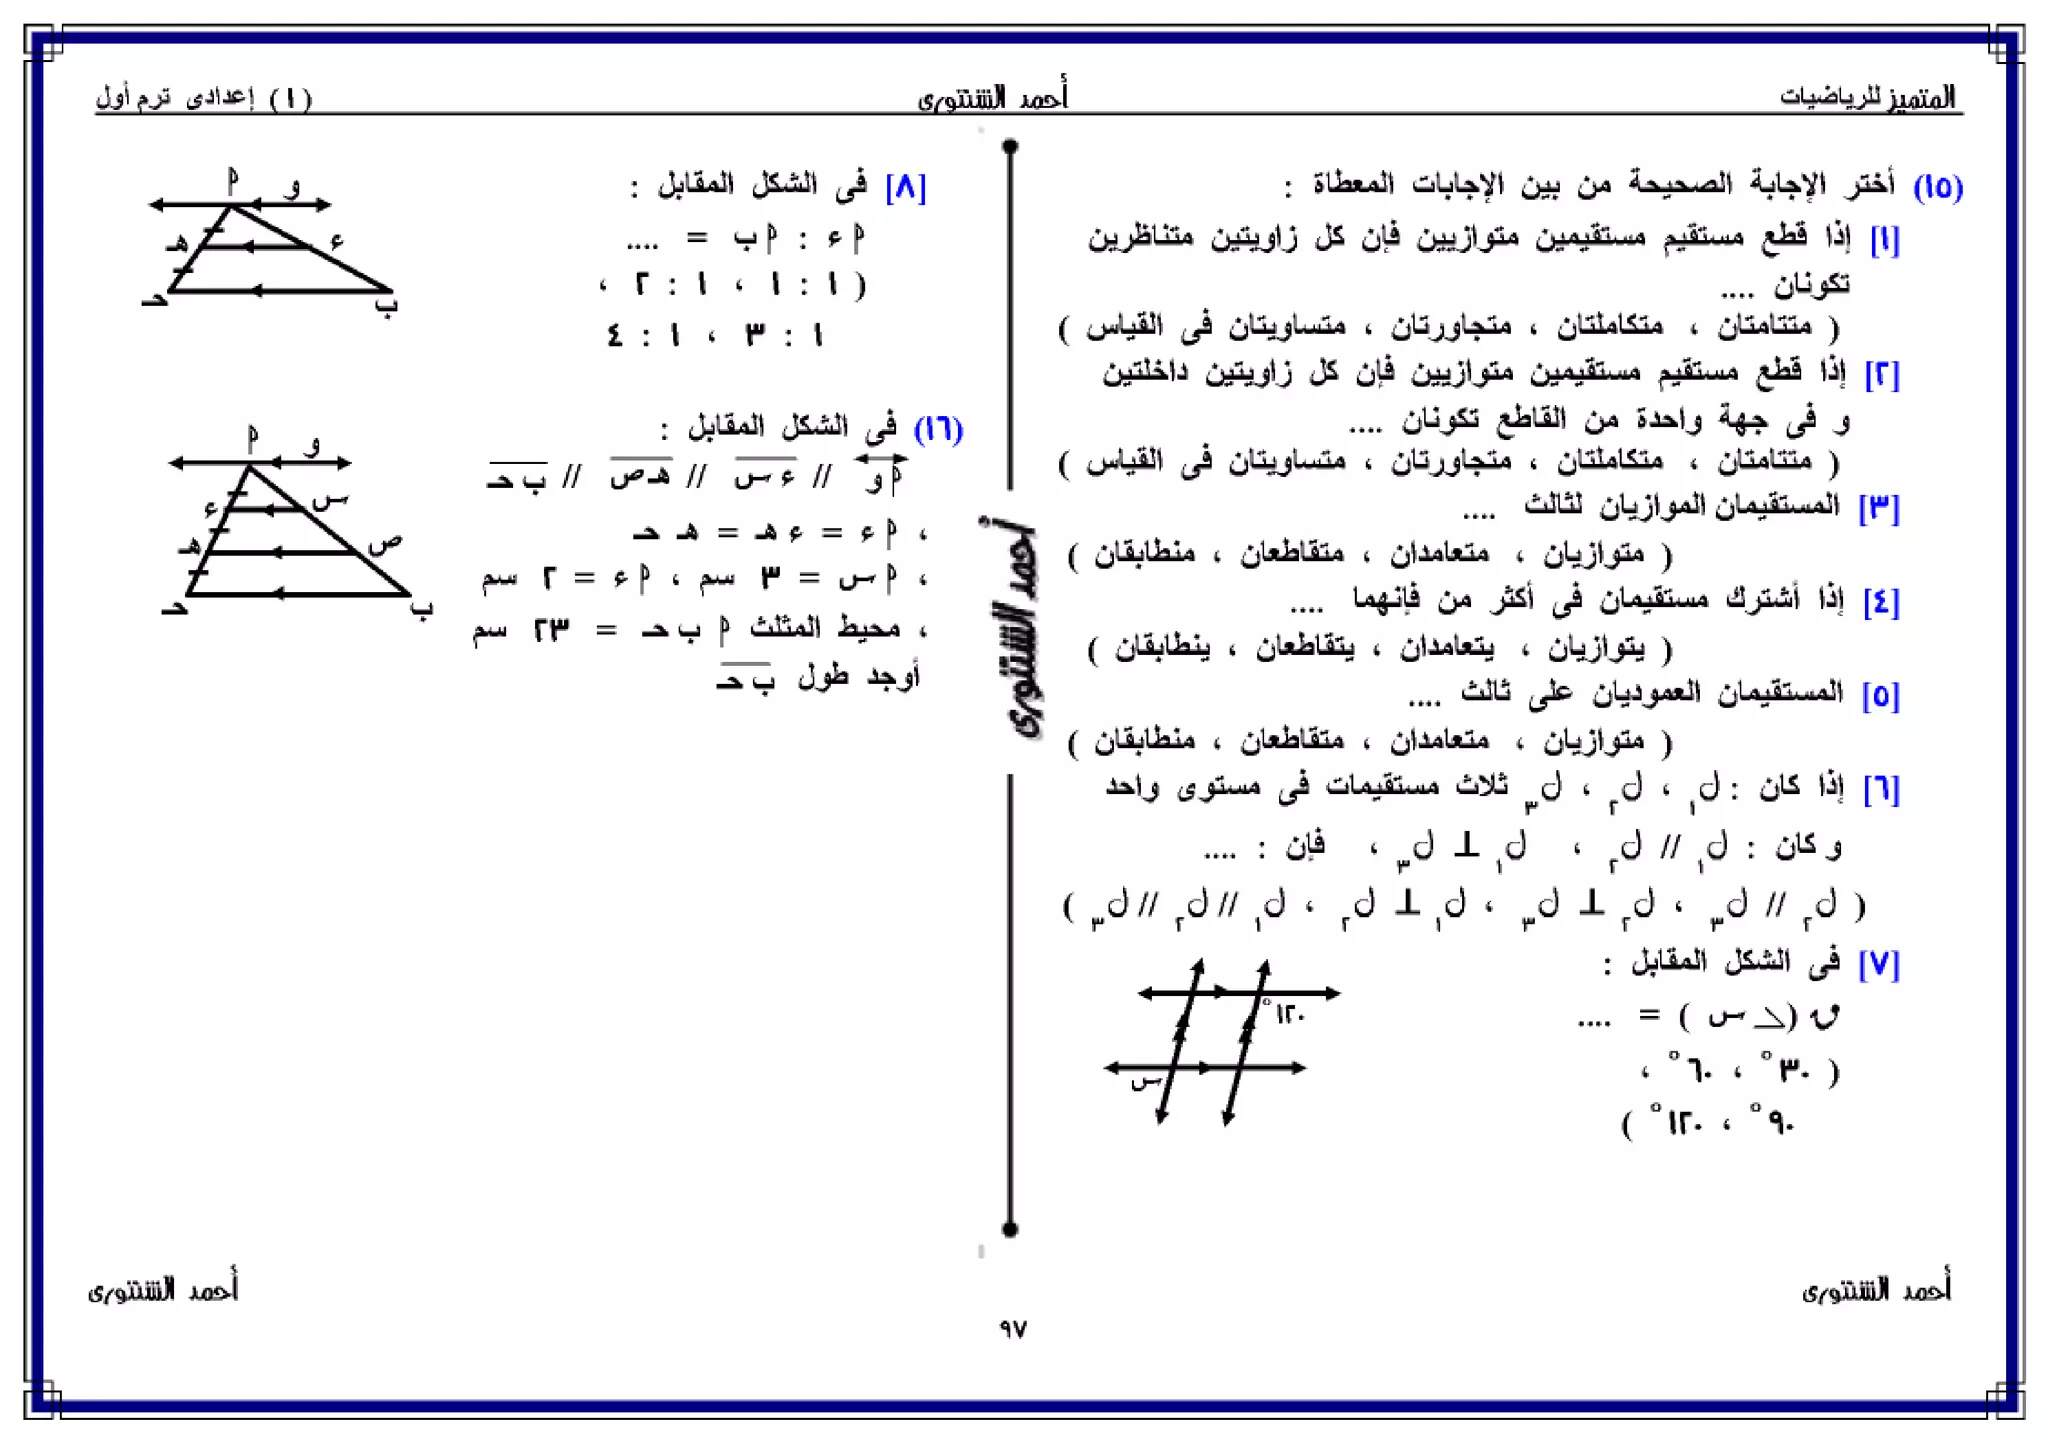 المتميز للرياضيات
أحمد الشنتورى
(١) إعدادى ترم أول
(١٥) أختر الإجابة الصحيحة من بين الإجابات المعطاة :
[١] إذا قطع مستقيم مستقيمين متوازيين فإن كل زاويتين متناظرين
تكونان ....
( متتامتان ، متكاملتان ، متجاورتان ، متساويتان فى القياس )
[٢] إذا قطع مستقيم مستقيمين متوازيين فإن كل زاويتين داخلتين
و فى جهة واحدة من القاطع تكونان ....
( متتامتان ، متكاملتان ، متجاورتان ، متساويتان فى القياس )
[٣] المستقيمان الموازيان لثالث ....
( متوازيان ، متعامدان ، متقاطعان ، منطابقان )
[٤] إذا أشترك مستقيمان فى أكثر من فإنهما ....
( يتوازيان ، يتعامدان ، يتقاطعان ، ينطابقان )
[٥] المستقيمان العموديان على ثالث ....
( متوازيان ، متعامدان ، متقاطعان ، منطابقان )
[٦] إذا كان : ل١ ، ل٢ ، ل٣ ثلاث مستقيمات فى مستوى واحد
و كان : ل١ // ل٢ ، ل١ ⊥ ل٣ ، فإن : ....
( ل٢ // ل٣ ، ل٢ ⊥ ل٣ ، ل١ ⊥ ل٢ ، ل١ // ل٢ // ل٣ )
[٧] فى الشكل المقابل :
ق (∠ س ) = ....
( ٣٠° ، ٦٠° ،
٩٠° ، ١٢٠° )
١٢٠°
س
أحمد الشنتورى
[٨] فى الشكل المقابل :
أ ء : أ ب = ....
( ١ : ١ ، ١ : ٢ ،
١ : ٣ ، ١ : ٤
أ
و
هـ
ء
حـ
ب
(١٦) فى الشكل المقابل :
أ و // ء س // هـ ص // ب حـ
، أ ء = ء هـ = هـ حـ
، أ س = ٣ سم ، أ ء = ٢ سم
، محيط المثلث أ ب حـ = ٢٣ سم
أوجد طول ب حـ
أ
و
ء
س
هـ
ص
حـ
ب
أحمد الشنتورى
أحمد الشنتورى
٩٧